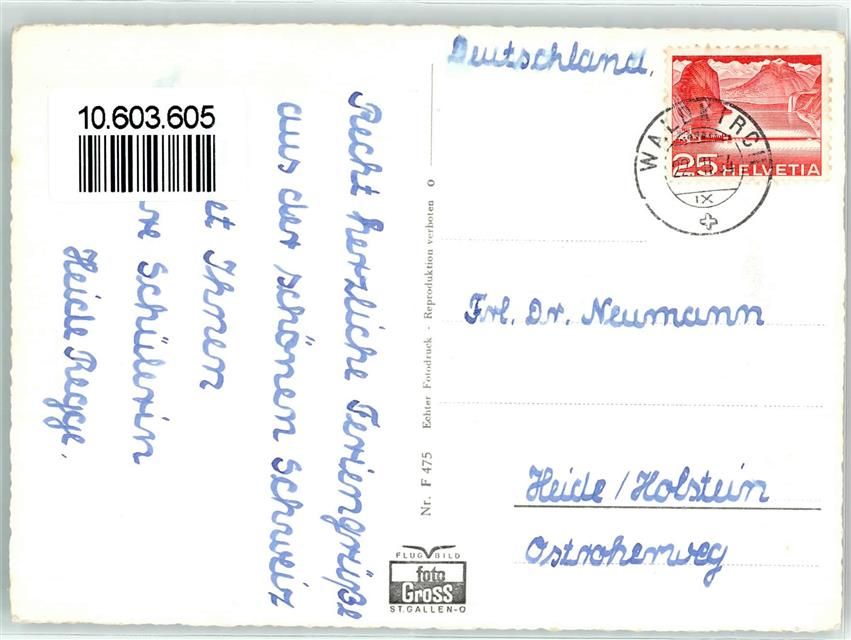 10.603.605
Recht herzliche Feriengrüße
aus der schönen Schweiz
et Ihnen
re Schülerin
Heide Regge.
Nr. F 475 Echter Fotodruck - Reproduktion verboten O
FLUGBILD
foto
GROSS
ST. GALLEN-O
Deutschland,
WALDKIRCH
IX
25 HELVETIA
Frl. Dr. Neumann
Heide / Holstein
Ostroherweg